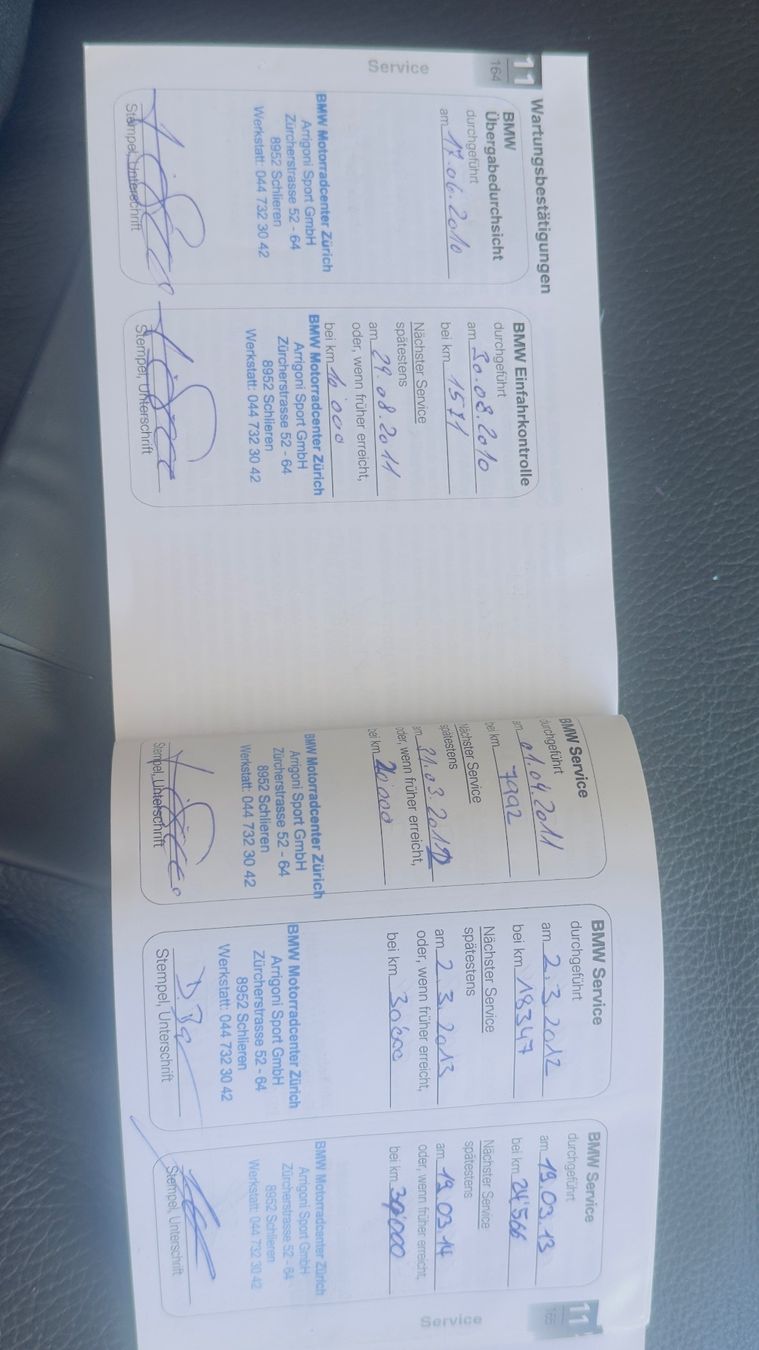 11
164
Service
Wartungsbestätigungen
BMW
Übergabedurchsicht
durchgeführt
am 17.06.2010
BMW Motorradcenter Zürich
Arrigoni Sport GmbH
Zürcherstrasse 52 - 64
8952 Schlieren
Werkstatt: 044 732 30 42
Stempel, Unterschrift
BMW Einfahrkontrolle
durchgeführt
am 30.08.2010
bei km 1571
Nächster Service
spätestens
am 29.08.2011
oder, wenn früher erreicht,
bei km 10'000
BMW Motorradcenter Zürich
Arrigoni Sport GmbH
Zürcherstrasse 52 - 64
8952 Schlieren
Werkstatt: 044 732 30 42
Stempel, Unterschrift
BMW Service
durchgeführt
am 01.04.2011
bei km 7992
Nächster Service
spätestens
am 31.03.2012
oder, wenn früher erreicht,
bei km 20'000
BMW Motorradcenter Zürich
Arrigoni Sport GmbH
Zürcherstrasse 52 - 64
8952 Schlieren
Werkstatt: 044 732 30 42
Stempel, Unterschrift
BMW Service
durchgeführt
am 2.3.2012
bei km 18347
Nächster Service
spätestens
am 2.3.2013
oder, wenn früher erreicht,
bei km 30'000
BMW Motorradcenter Zürich
Arrigoni Sport GmbH
Zürcherstrasse 52 - 64
8952 Schlieren
Werkstatt: 044 732 30 42
Stempel, Unterschrift
BMW Service
durchgeführt
am 19.03.13
bei km 24'566
Nächster Service
spätestens
am 19.03.14
oder, wenn früher erreicht,
bei km 30'000
BMW Motorradcenter Zürich
Arrigoni Sport GmbH
Zürcherstrasse 52 - 64
8952 Schlieren
Werkstatt: 044 732 30 42
Stempel, Unterschrift
11
165
Service